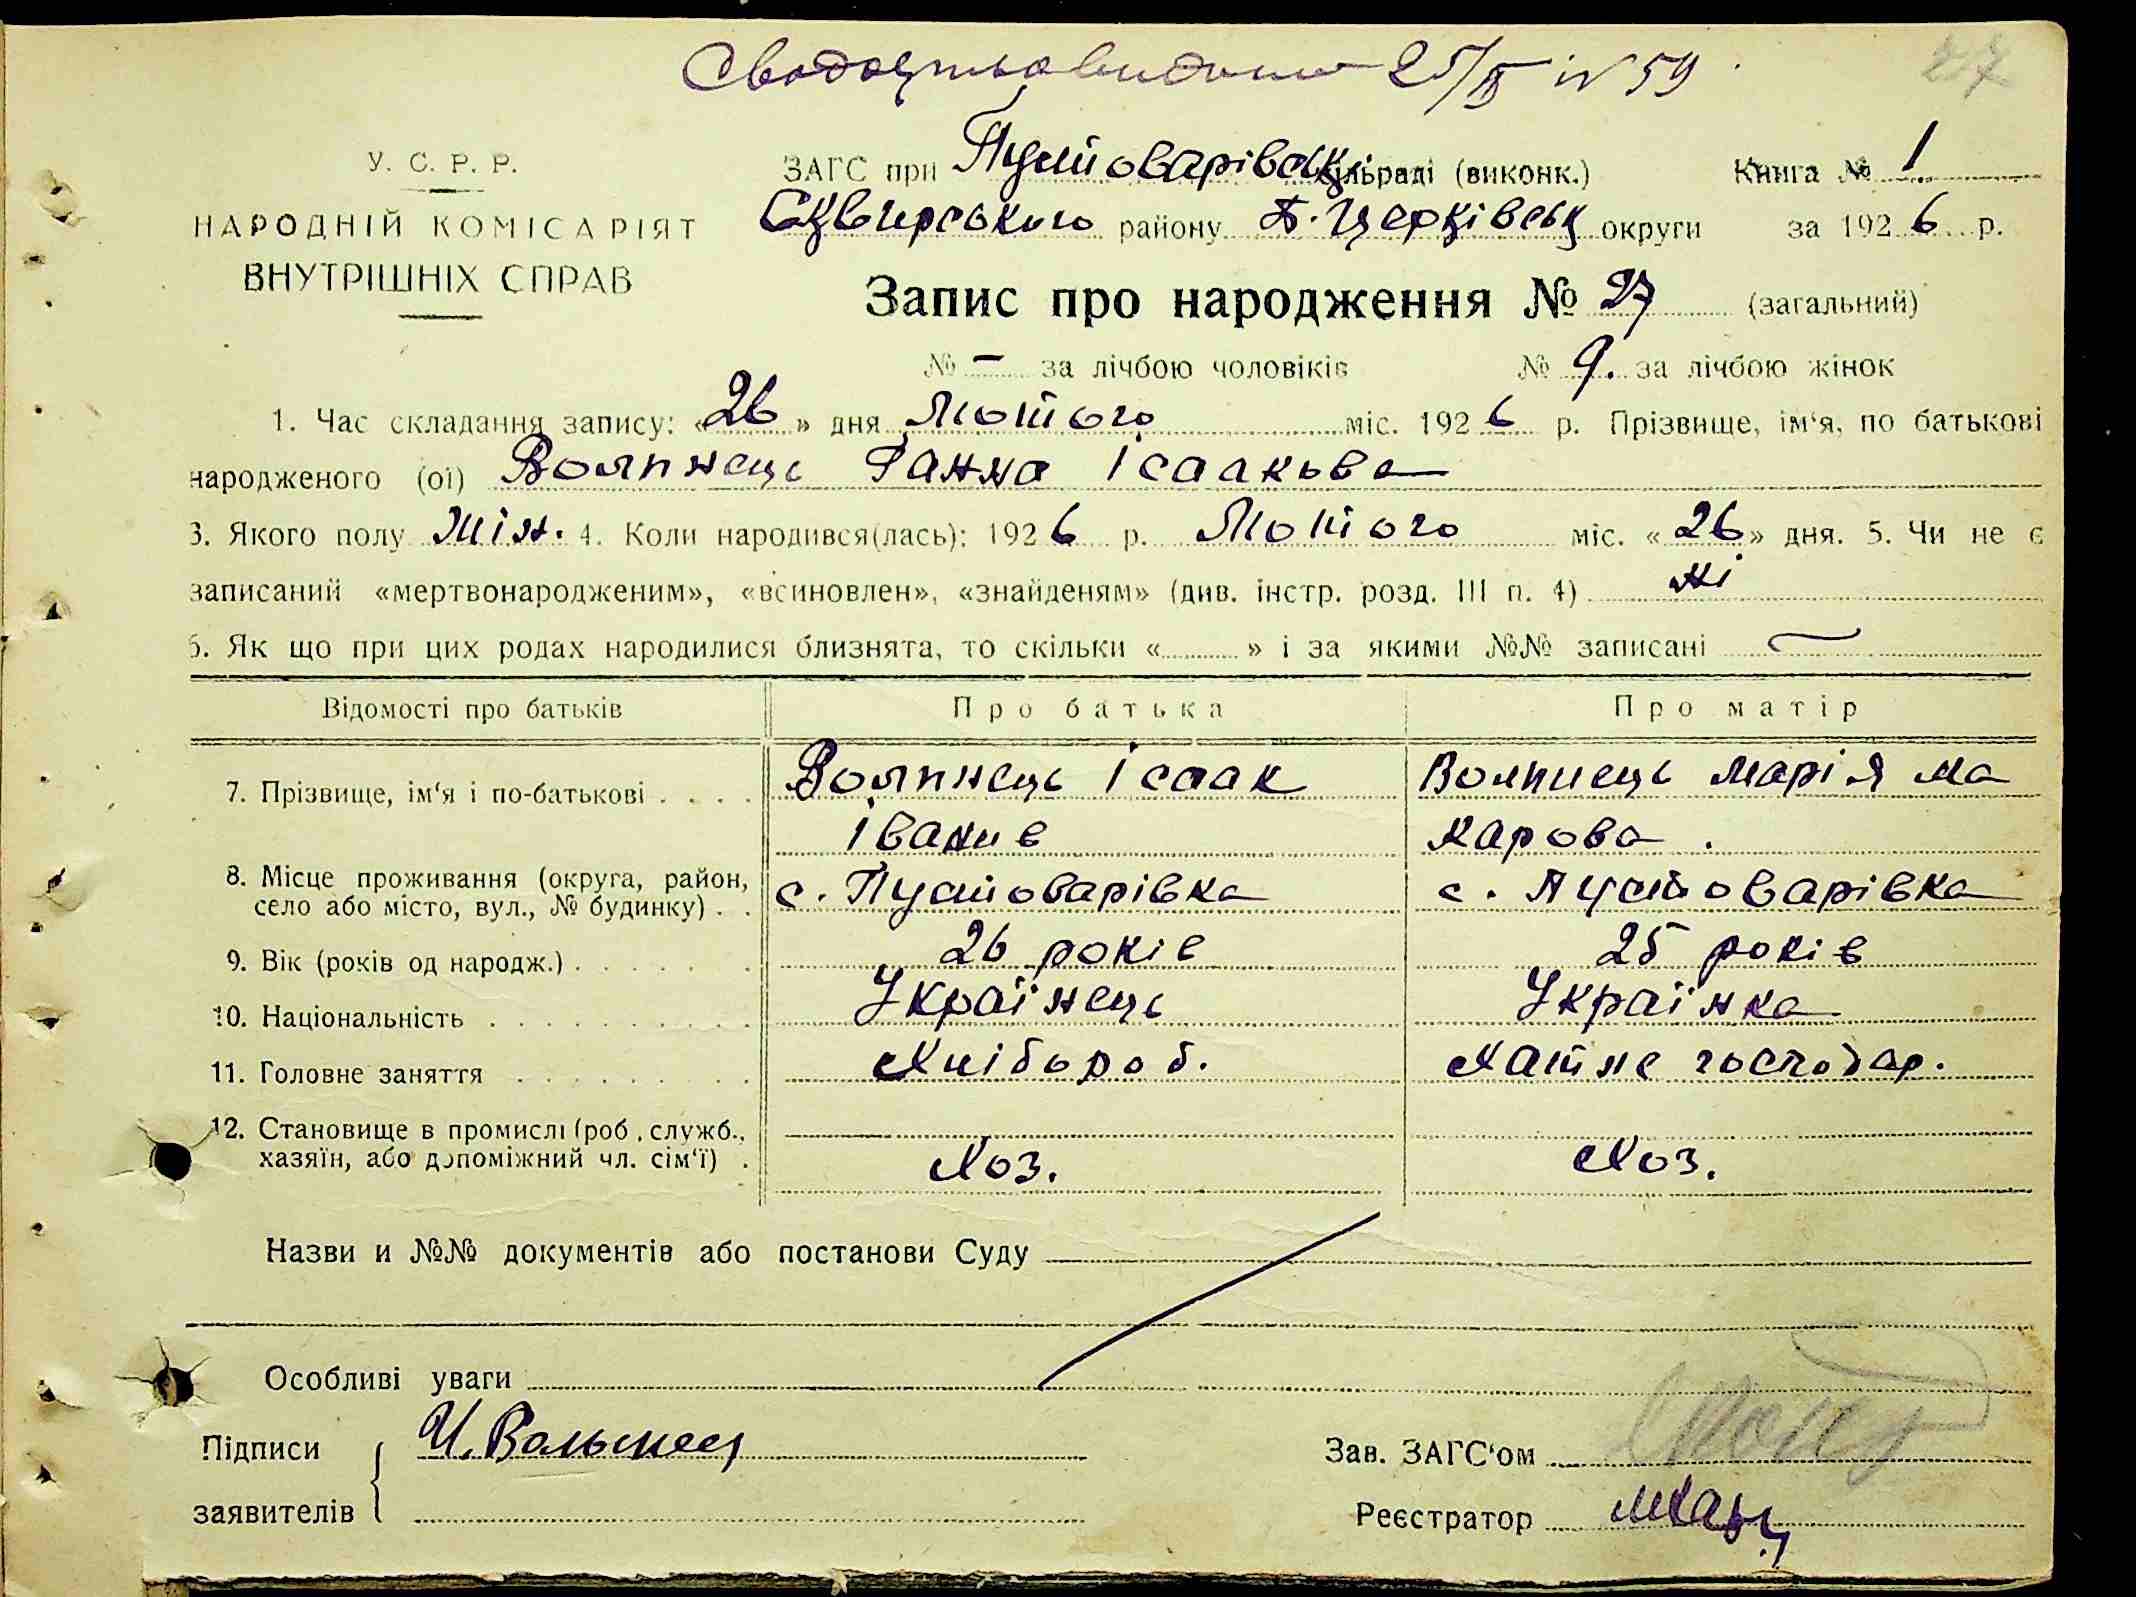 Свідоцтво видано 25/ІІ № 59
27
У. С. Р. Р.
НАРОДНІЙ КОМІСАРІЯТ
ВНУТРІШНІХ СПРАВ
ЗАГС при Пустоварівськ сільраді (виконк.) Книга № 1
Сквирського району Б. Церківськ округи за 1926 р.
Запис про народження № 27 (загальний)
№ — за лічбою чоловіків № 9. за лічбою жінок
1. Час складання запису: «26» дня Лютого міс. 1926 р. Прізвище, ім'я, по батькові
народженого (ої) Волинець Ганна Ісаакова
3. Якого полу жін. 4. Коли народився(лась): 1926 р. Лютого міс. «26» дня. 5. Чи не є
записаний «мертвонародженим», «всиновлен», «знайденям» (див. інстр. розд. III п. 4) ні
6. Як що при цих родах народилися близнята, то скільки « » і за якими №№ записані —
Відомості про батьків Про батька Про матір
7. Прізвище, ім'я і по-батькові . . . . Волинець Ісаак Волинець Марія Ма
Іванив карова .
8. Місце проживання (округа, район,
село або місто, вул., № будинку) . . с. Пустоварівка с. Пустоварівка
9. Вік (років од народж.) . . . . . . 26 років 25 років
10. Національність . . . . . . . . . . Українець Українка
11. Головне заняття . . . . . . . . . Хлібороб. Хатнє господар.
12. Становище в промислі (роб., служб.,
хазяїн, або допоміжний чл. сім'ї) . Хоз. Хоз.
Назви и №№ документів або постанови Суду
Особливі уваги
Підписи И. Волынец Зав. ЗАГС'ом
заявителів Реєстратор